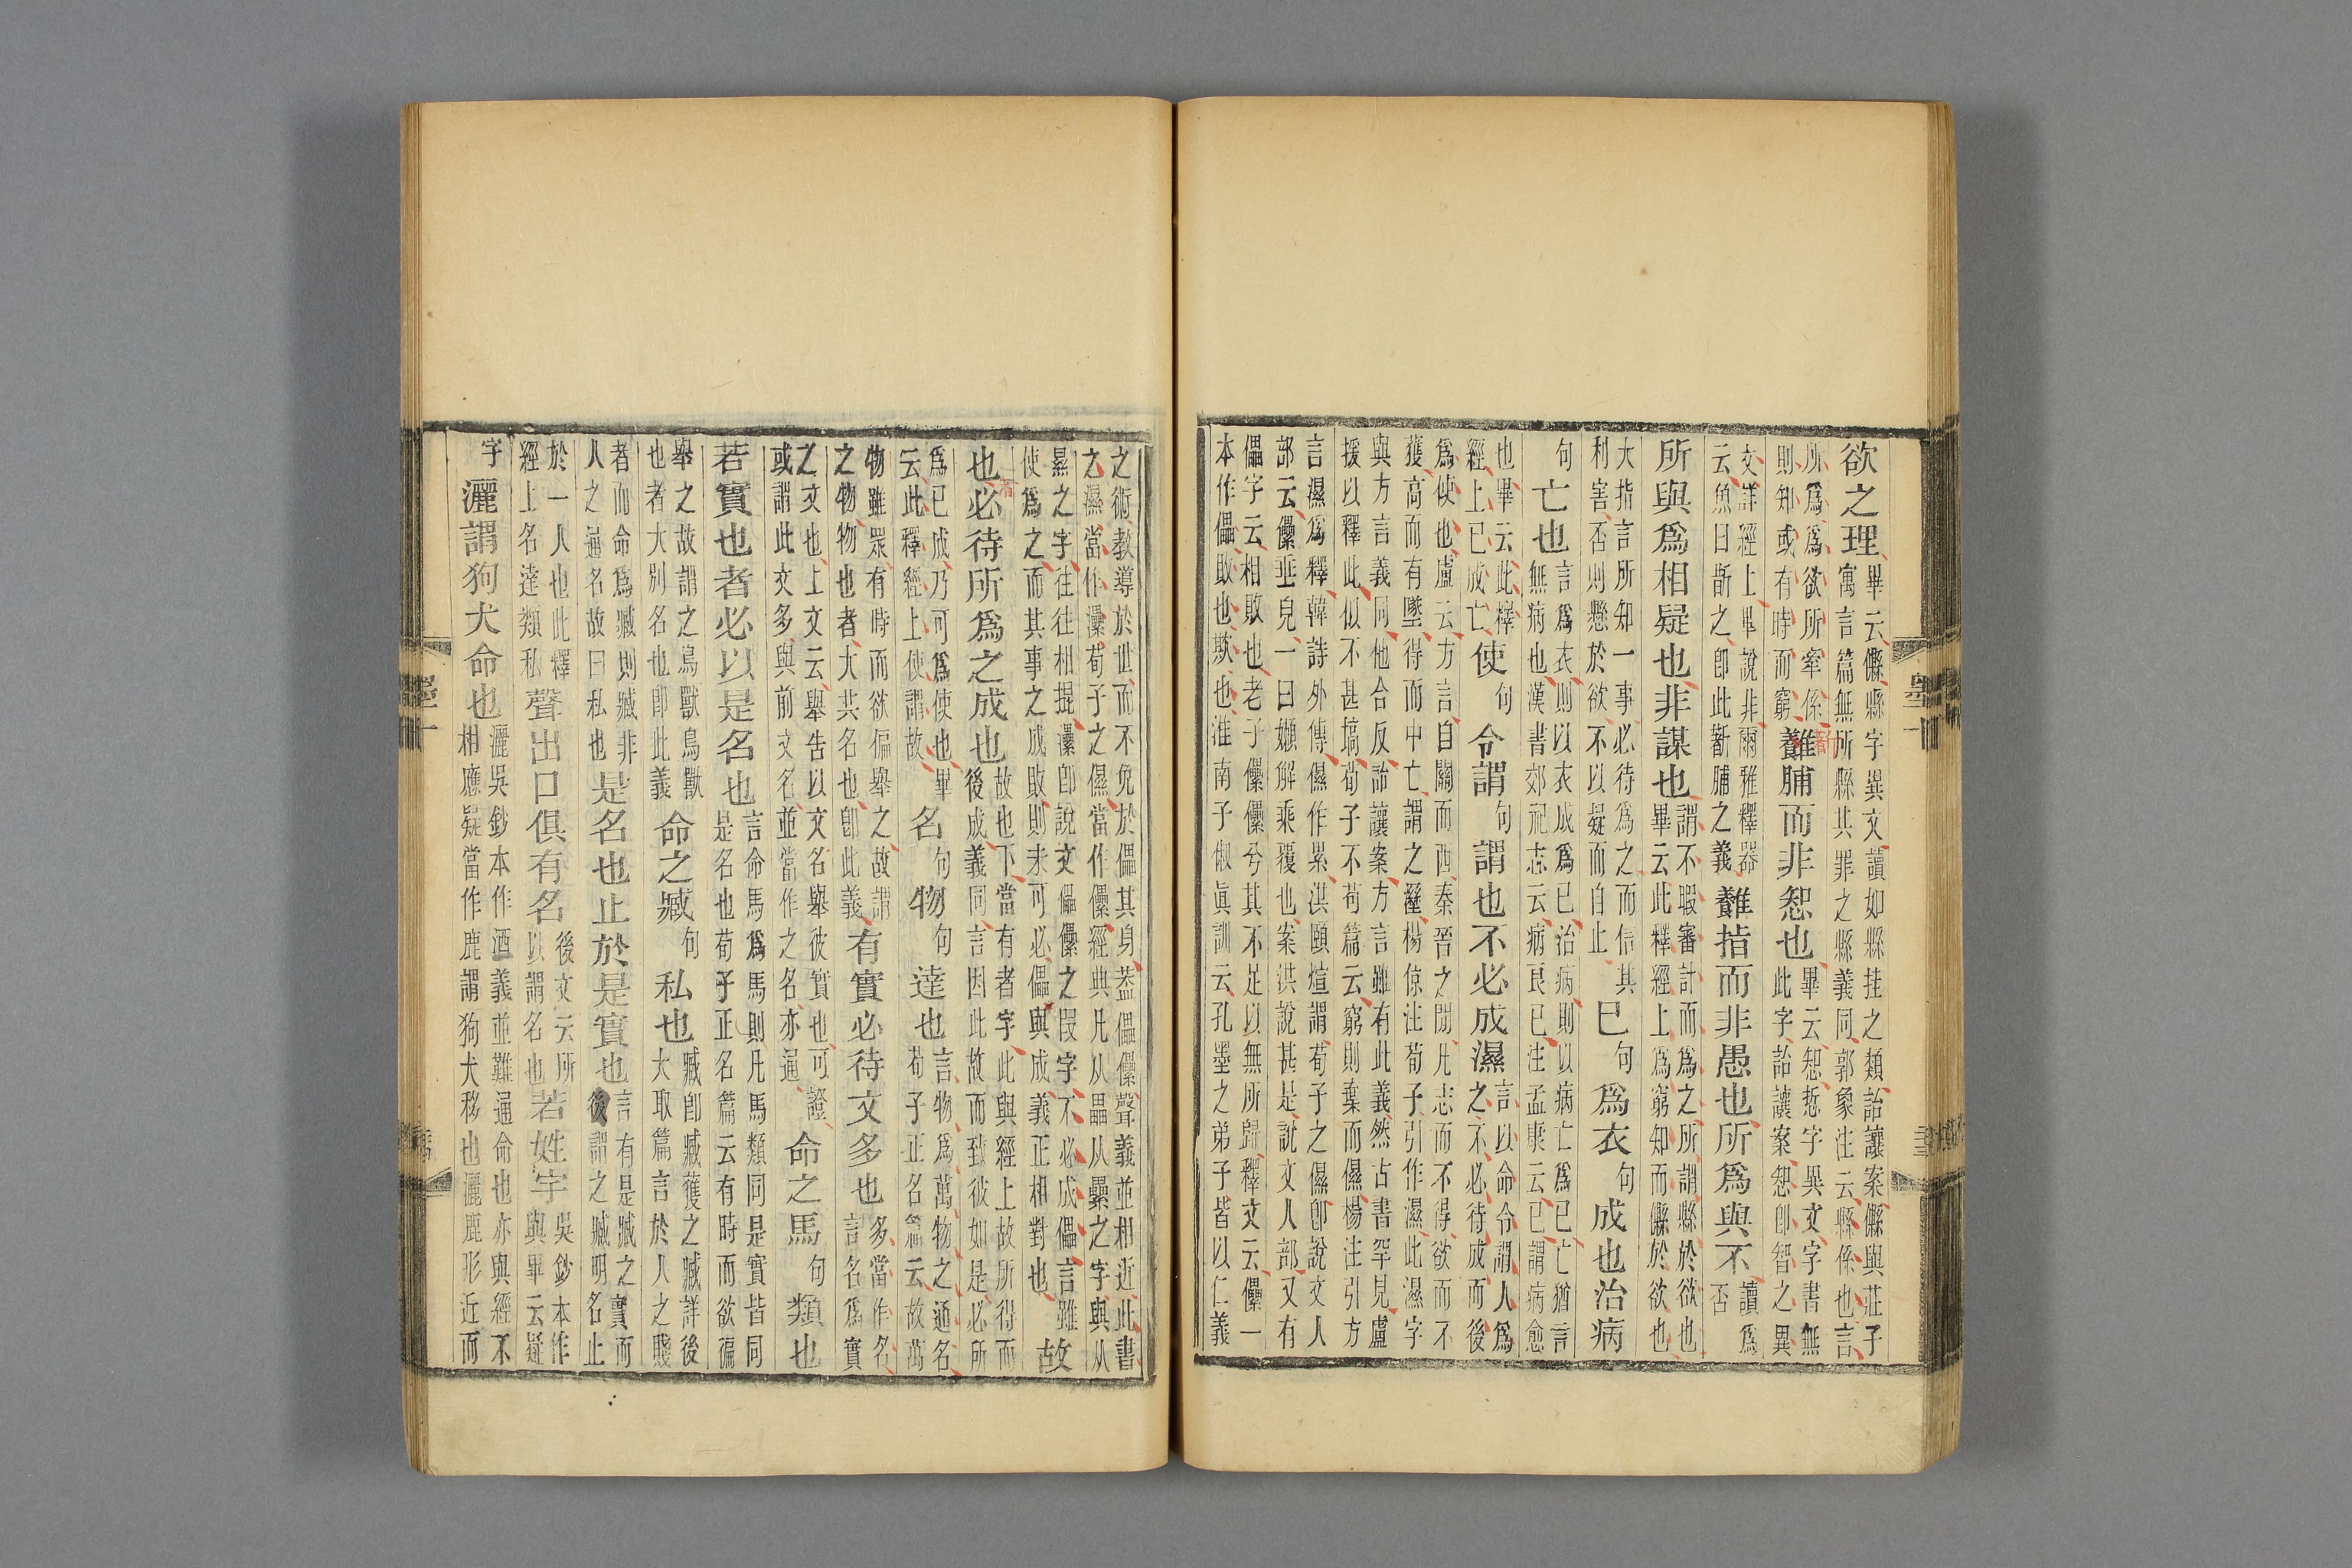 欲之理畢云縣縣字異文讀如縣挂之類詒讓案縣與莊子
寓言篇無所縣其罪之縣義同郭象注云縣係也言
所爲爲欲所牽係
則知或有時而窮
脯而非恕也畢云恕悊字異文字書無
此字詒讓案恕卽智之異
文詳經上畢說非爾雅釋器
云魚曰斮之卽此脯之義
指而非愚也所爲與不讀爲
否
所與爲相疑也非謀也謂不暇審計而爲之所謂縣於欲也
畢云此釋經上爲窮知而縣於欲也
大指言所知一事必待爲之而信其
利害否則懸於欲不以疑而自止
已句爲衣句成也治病
句亡也言爲衣則以衣成爲已治病則以病亡爲已亡猶言
無病也漢書郊祀志云病良已注孟康云已謂病愈
也畢云此釋
經上已成亡
使句令謂句謂也不必成濕言以命令謂人爲
之不必待成而後
爲使也盧云方言自關而西秦晉之閒凡志而不得欲而不
獲高而有墜得而中亡謂之溼楊倞注荀子引作濕此濕字
與方言義同他合反詒讓案方言雖有此義然古書罕見盧
援以釋此似不甚塙荀子不苟篇云窮則棄而儑楊注引方
言濕爲釋韓詩外傳儑作累洪頤煊謂荀子之儑卽說文人
部云儽垂皃一曰嬾解乘覆也案洪說甚是說文人部又有
儡字云相敗也老子儽儽兮其不足以無所歸釋文云儽一
本作儡敗也欺也淮南子俶眞訓云孔墨之弟子皆以仁義
之術教導於世而不免於儡其身葢儡儽聲義並相近此書
之濕當作㶟荀子之儑當作儽經典凡从畾从纍之字與从
㬎之字往往相提㶟卽說文儡儽之叚字不必成儡言雖
使爲之而其事之成敗則未可必儡與成義正相對也
故
也必待所爲之成也故也下當有者字此與經上故所得而
後成義同言因此故而致彼如是必所
爲已成乃可爲使也畢
云此釋經上使謂故
名句物句達也言物爲萬物之通名
荀子正名篇云故萬
物雖眾有時而欲偏舉之故謂
之物物也者大共名也卽此義
有實必待文多也多當作名
言名爲實
之文也上文云舉告以文名舉彼實也可證
或謂此文多與前文名並當作之名亦通
命之馬句類也
若實也者必以是名也言命馬爲馬則凡馬類同是實皆同
是名也荀子正名篇云有時而欲徧
舉之故謂之鳥獸鳥獸
也者大別名也卽此義
命之臧句私也臧卽臧獲之臧詳後
大取篇言於人之賤
者而命爲臧則臧非
人之通名故曰私也
是名也止於是實也言有是臧之實而
後謂之臧明名止
於一人也此釋
經上名達類私
聲出口俱有名後文云所
以謂名也
若姓字吳鈔本作
與畢云疑
字
灑謂狗犬命也灑吳鈔本作酒義並難通命也亦與經不
相應疑當作鹿謂狗犬移也灑鹿形近而